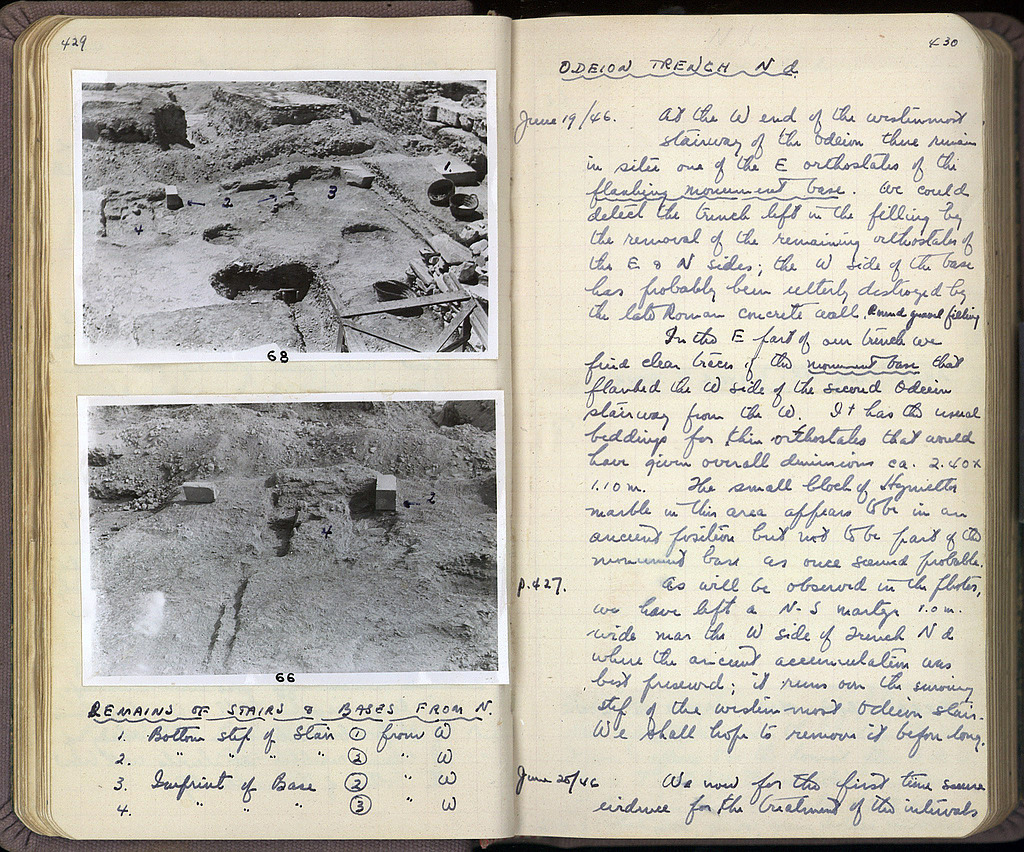 429
1
2
3
4
68
2
4
66
REMAINS OF STAIRS & BASES FROM N.
1. Bottom step of Stair ① from W
2. " " " " ② " W
3. Imprint of Base ② " W
4. " " " ③ " W
430
ODEION TRENCH N d.
June 19/46. At the W end of the westernmost
stairway of the Odeion there remain
in situ one of the E orthostates of the
flanking monument base. We could
detect the trench left in the filling by
the removal of the remaining orthostates of
the E & N sides; the W side of the base
has probably been utterly destroyed by
the late Roman concrete wall. & mud gravel filling
In the E part of our trench we
find clear traces of the monument base that
flanked the W side of the second Odeion
stairway from the W. It has the usual
beddings for thin orthostates that would
have given overall dimensions ca. 2.40 x
1.10 m. The small block of Hymettos
marble in this area appears to be in an
ancient position but not to be part of the
monument base as once seemed probable.
p. 427. As will be observed in the photos,
we have left a N-S martyr 1.0 m.
wide near the W side of Trench N d
where the ancient accumulation was
best preserved; it runs over the surviving
step of the western-most Odeion stair.
We shall hope to remove it before long.
June 28/46 We now for the first time secure
evidence for the treatment of the intervals